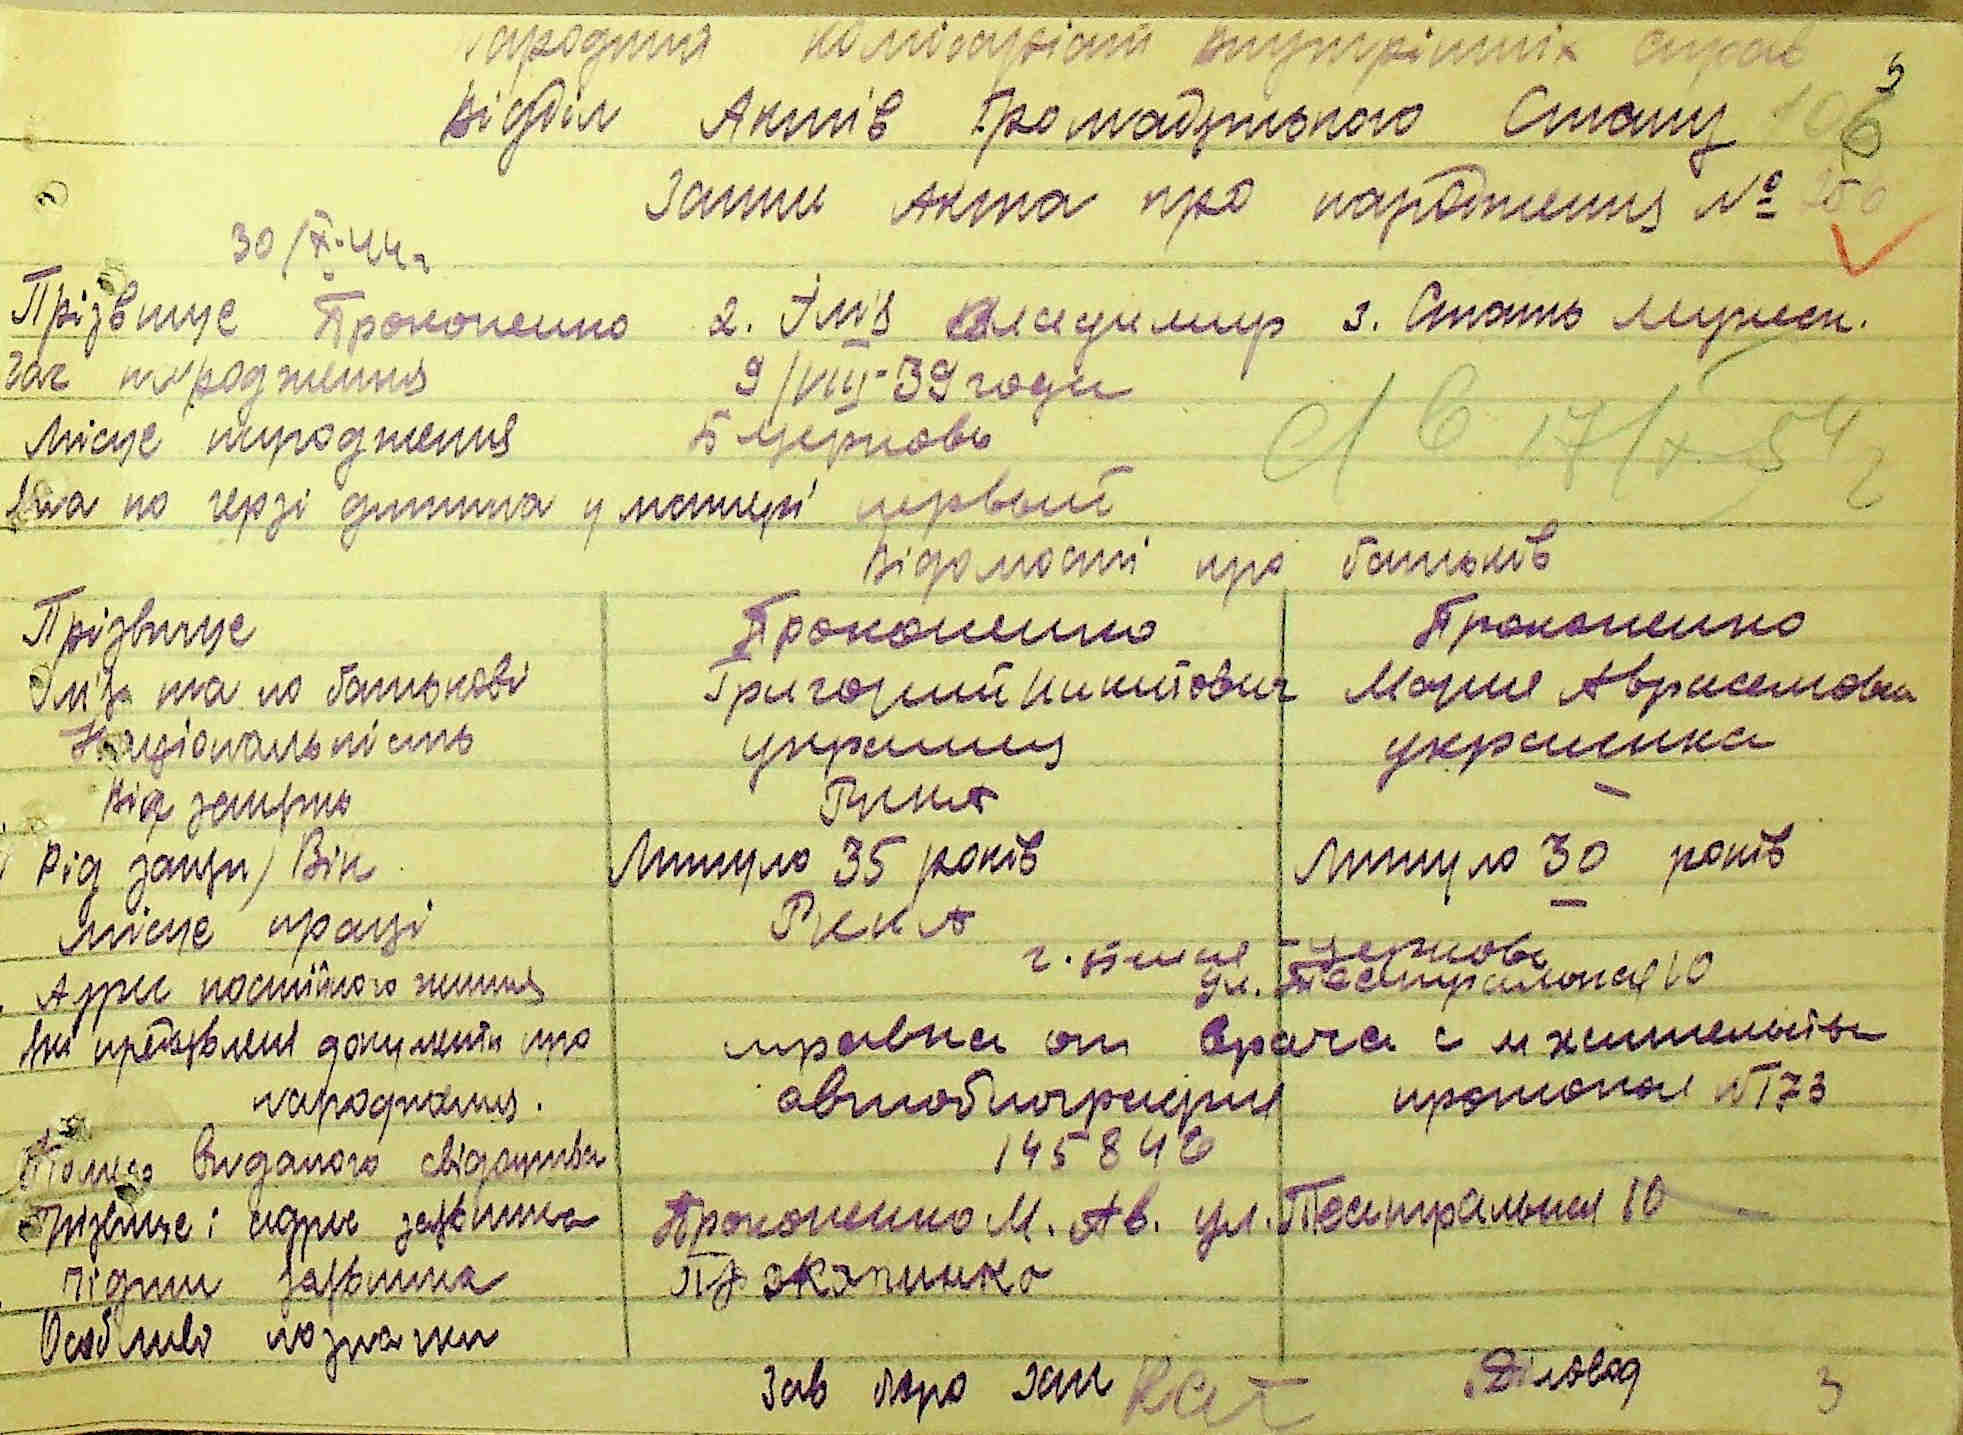 Народний комісаріат внутрішніх справ
Відділ Актів Громадянського Стану 106
5
Запис Акта про народження № 250
30/X-44г
Прізвище Прокопенко 2. Ім'я Владимир 3. Стать мужск.
Час народження 9/VIII-39 года
Місце народження Б Церковь
яка по черзі дитина у матері первый
17/X-54 г
Відомості про батьків
Прізвище Прокопенко Прокопенко
Ім'я та по батькові Григорий Никитович Мария
Національність украинец украинка
Від заняття РККА –
Від заняття/Вік Минуло 35 років Минуло 30 років
Місце праці РККА –
г. Белая-Церковь
Адрес постійного життя ул. Театральная 10
Які представлені документи про справка от врача с м жительства
народження. автобиография протокол №173
Номер виданого свідоцтва 145846
Прізвище і адрес заявника Прокопенко М. Ав. ул. Театральная 10
Підпис заявника Пракапинко
Особливі позначки
Зав бюро ЗАГС Діловод 3